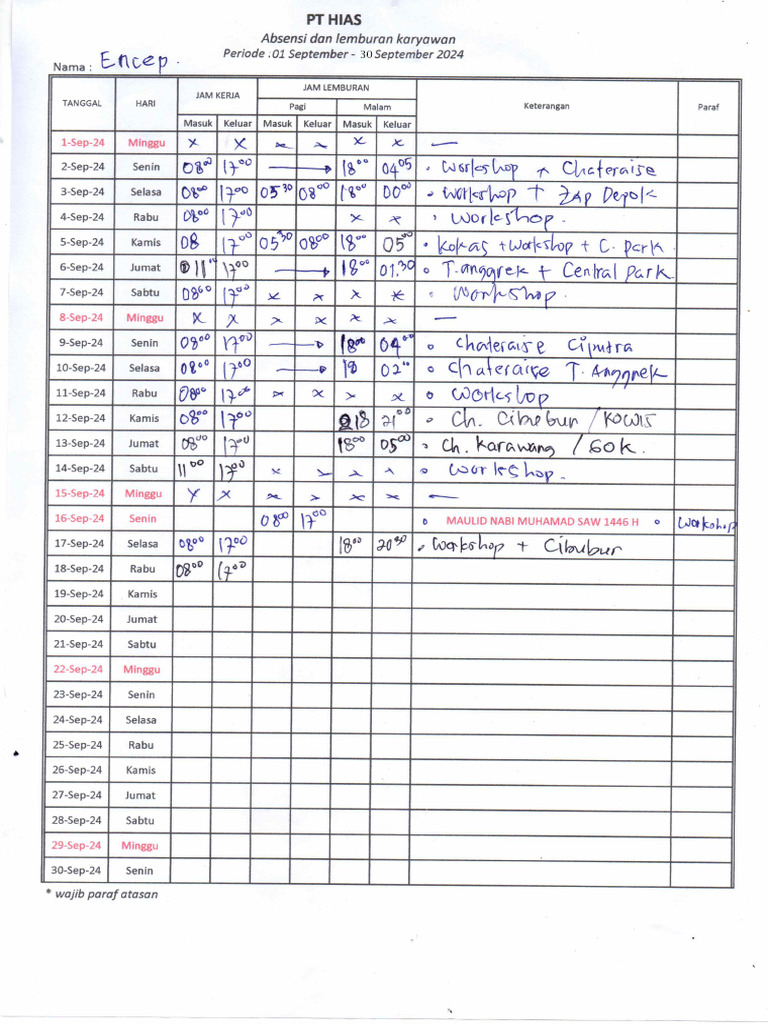 PT HIAS
Absensi dan lemburan karyawan
Periode : 01 September - 30 September 2024
Nama : Encep.
TANGGAL HARI JAM KERJA JAM LEMBURAN Keterangan Paraf
Pagi Malam
Masuk Keluar Masuk Keluar Masuk Keluar
1-Sep-24 Minggu x x x x x x —
2-Sep-24 Senin 08⁰⁰ 17⁰⁰ → 18⁰⁰ 04⁰⁵ • Workshop + Chateraise
3-Sep-24 Selasa 08⁰⁰ 17⁰⁰ 05³⁰ 08⁰⁰ 18⁰⁰ 00⁰⁰ • Workshop + ZAP Depok
4-Sep-24 Rabu 08⁰⁰ 17⁰⁰ x x • Workshop.
5-Sep-24 Kamis 08 17⁰⁰ 05³⁰ 08⁰⁰ 18⁰⁰ 05⁰⁰ • Kokas + Workshop + C. park
6-Sep-24 Jumat 11 17⁰⁰ → 18⁰⁰ 01.30 • T. anggrek + Central park
7-Sep-24 Sabtu 08⁰⁰ 17⁰⁰ x x x x • Workshop.
8-Sep-24 Minggu x x x x x x —
9-Sep-24 Senin 08⁰⁰ 17⁰⁰ → 18⁰⁰ 04⁰⁰ • Chateraise Ciputra
10-Sep-24 Selasa 08⁰⁰ 17⁰⁰ → 18 02⁰⁰ • Chateraise T. Anggrek
11-Sep-24 Rabu 08⁰⁰ 17⁰⁰ x x x x • Workshop
12-Sep-24 Kamis 08⁰⁰ 17⁰⁰ 18 21⁰⁰ • Ch. Cibubur /
13-Sep-24 Jumat 08⁰⁰ 17⁰⁰ 18⁰⁰ 05⁰⁰ • Ch. Karawang /
14-Sep-24 Sabtu 11⁰⁰ 17⁰⁰ x x x x • Workshop.
15-Sep-24 Minggu x x x x x x —
16-Sep-24 Senin 08⁰⁰ 17⁰⁰ • MAULID NABI MUHAMAD SAW 1446 H • Workshop
17-Sep-24 Selasa 08⁰⁰ 17⁰⁰ 18⁰⁰ 20³⁰ • Workshop + Cibubur
18-Sep-24 Rabu 08⁰⁰ 17⁰⁰
19-Sep-24 Kamis
20-Sep-24 Jumat
21-Sep-24 Sabtu
22-Sep-24 Minggu
23-Sep-24 Senin
24-Sep-24 Selasa
25-Sep-24 Rabu
26-Sep-24 Kamis
27-Sep-24 Jumat
28-Sep-24 Sabtu
29-Sep-24 Minggu
30-Sep-24 Senin
* wajib paraf atasan